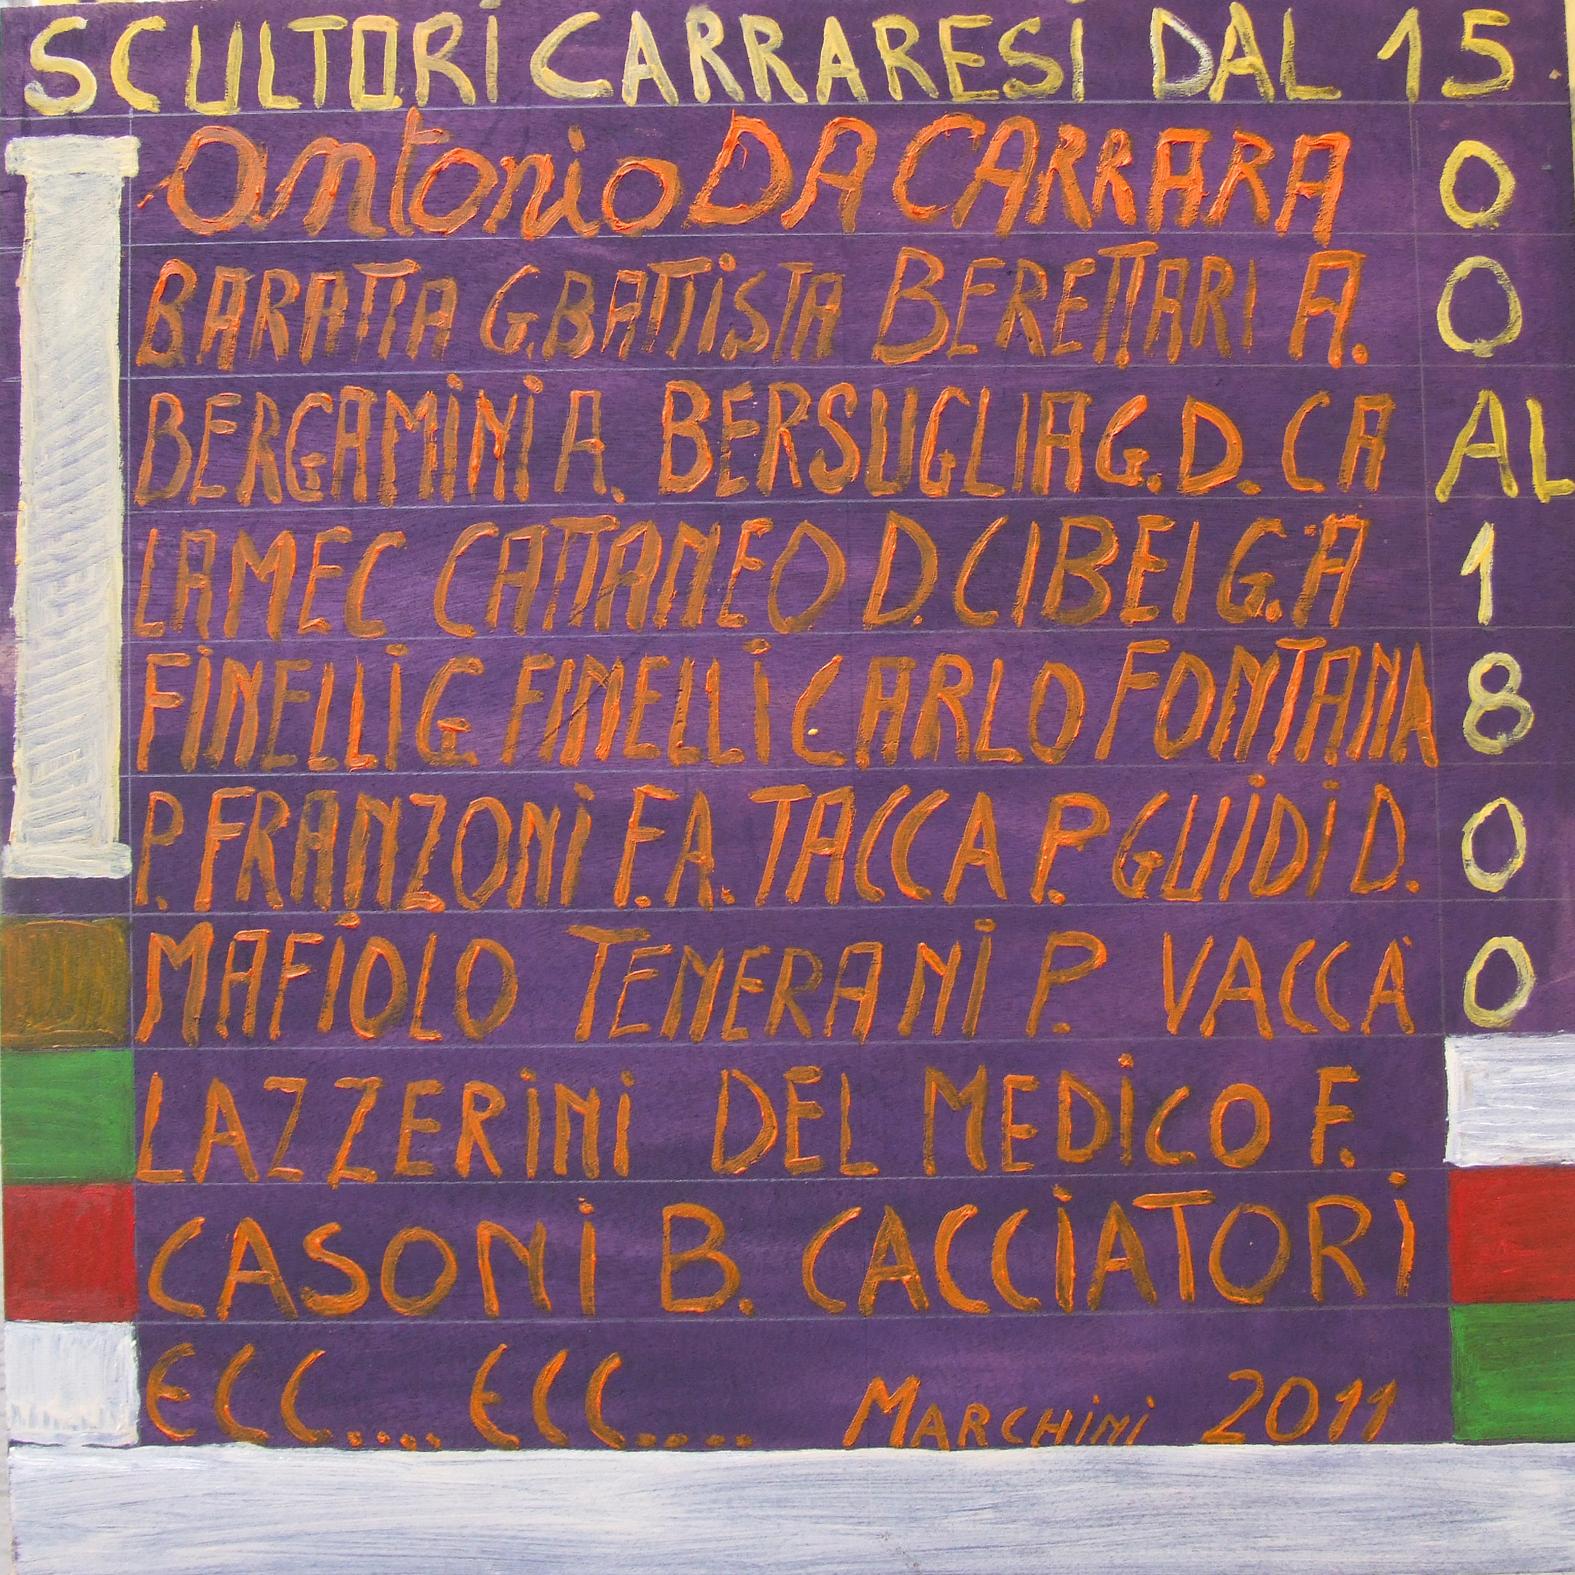 SCULTORI CARRARESI DAL 15
Antonio DA CARRARA 0
BARATTA G.BATTISTA BERETTARI A. 0
BERGAMINI A. BERSUGLIA G.D. CA AL
LAMEC CATTANEO D. CIBEI G.A 1
FINELLI G FINELLI CARLO FONTANA 8
P. FRANZONI F.A. TACCA P. GUIDI D. 0
MAFIOLO TENERANI P. VACCÀ 0
LAZZERINI DEL MEDICO F.
CASONI B. CACCIATORI
ECC.... ECC.... MARCHINI 2011